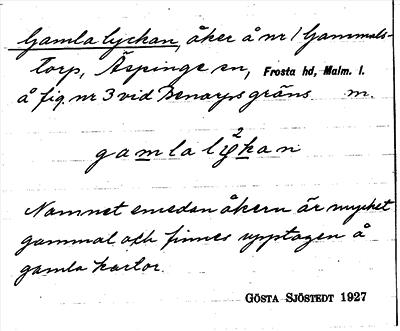 Gamla lyckan, åker å nr 1 Gammals-
torp, Äspinge sn, Frosta hd, Malm. l.
å fig. nr 3 vid Benarps gräns. m.
gamla lykan
2
Namnet emedan åkern är mycket
gammal och finnes upptagen å
gamla kartor.
GÖSTA SJÖSTEDT 1927